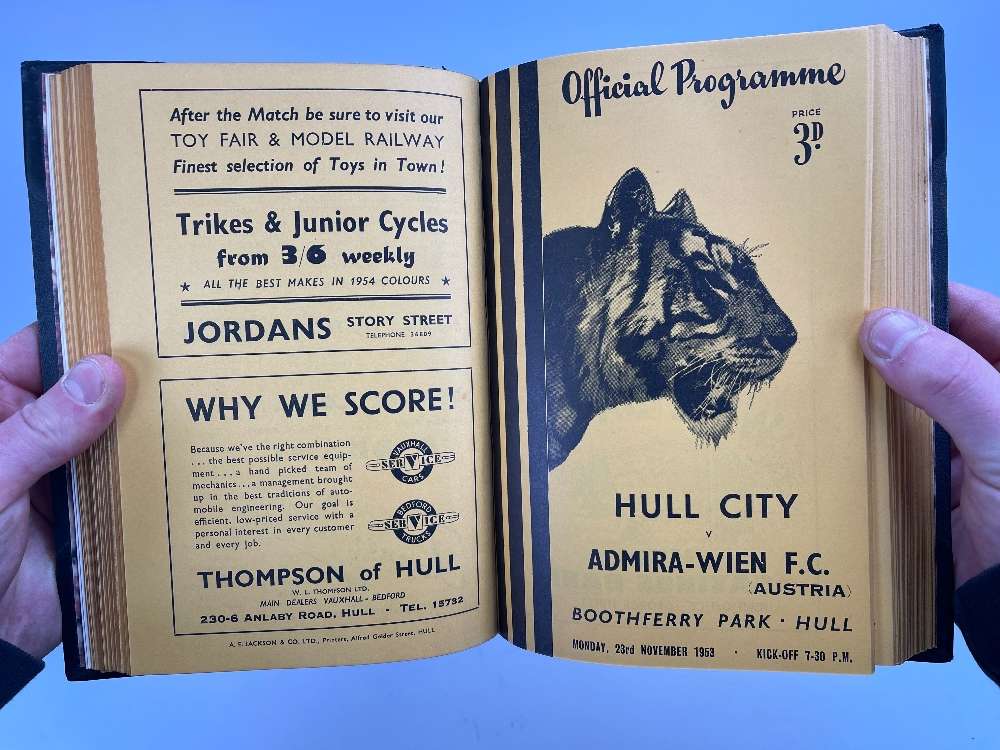 After the Match be sure to visit our
TOY FAIR & MODEL RAILWAY
Finest selection of Toys in Town!
Trikes & Junior Cycles
from 3/6 weekly
★ ALL THE BEST MAKES IN 1954 COLOURS ★
JORDANS STORY STREET
TELEPHONE 34809
WHY WE SCORE!
Because we've the right combination
... the best possible service equip-
ment ... a hand picked team of
mechanics ... a management brought
up in the best traditions of auto-
mobile engineering. Our goal is
efficient, low-priced service with a
personal interest in every customer
and every job.
VAUXHALL
SERVICE
CARS
BEDFORD
SERVICE
TRUCKS
THOMPSON of HULL
W. L. THOMPSON LTD.
MAIN DEALERS VAUXHALL - BEDFORD
230-6 ANLABY ROAD, HULL - TEL. 15732
A. E. JACKSON & CO. LTD., Printers, Alfred Gelder Street, HULL
Official Programme
PRICE
3D.
HULL CITY
v
ADMIRA-WIEN F.C.
(AUSTRIA)
BOOTHFERRY PARK · HULL
MONDAY, 23rd NOVEMBER 1953 · KICK-OFF 7-30 P.M.